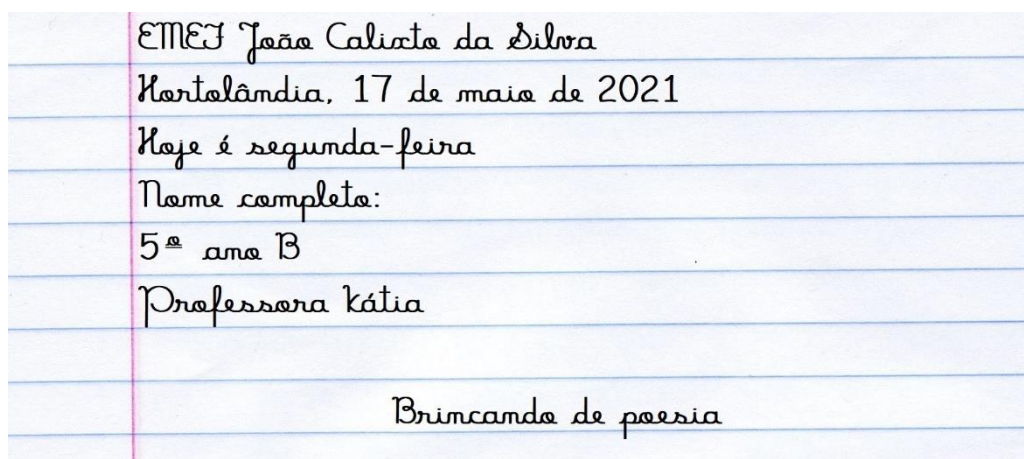 EMEF João Calixto da Silva
Hortolândia, 17 de maio de 2021
Hoje é segunda-feira
Nome completo:
5º ano B
Professora Kátia
Brincando de poesia